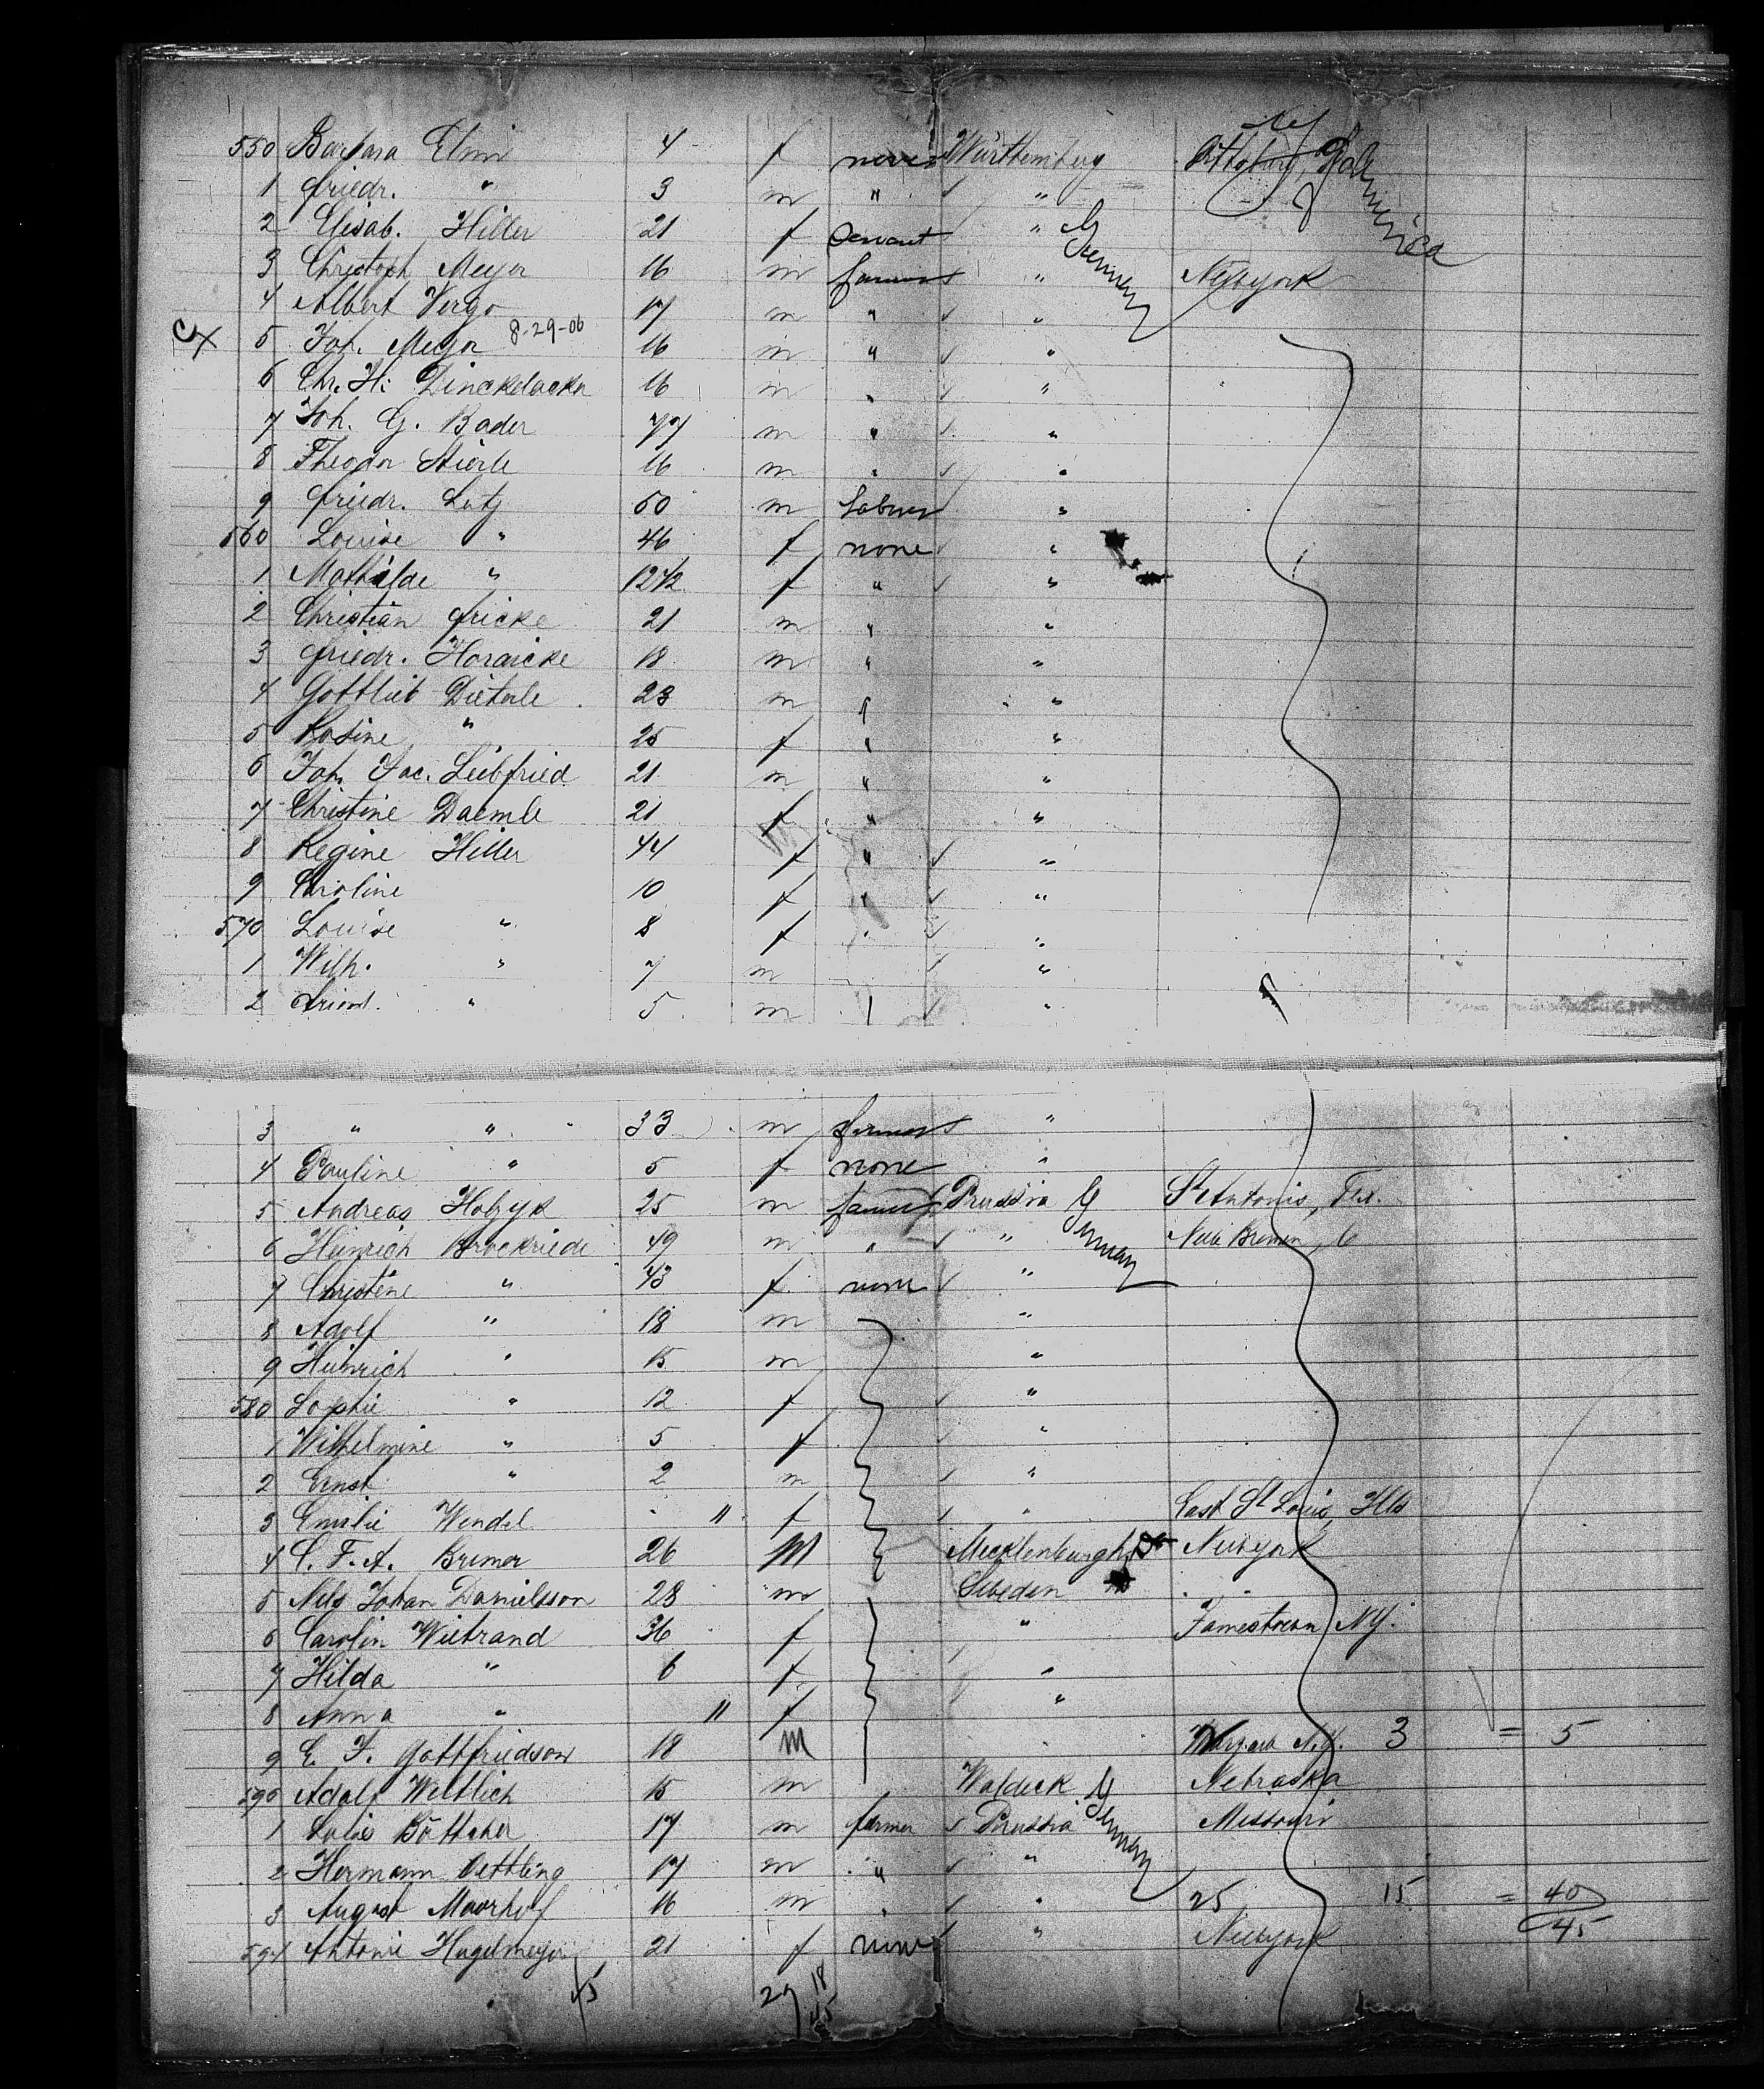 550 Barbara Elmi 4 f none Württemberg
1 Friedr. " 3 m " "
2 Elisab. Hiller 21 f Servant " Germany
3 Christoph Meyer 16 m farmer " Newyork
4 Albert 17 m " "
CX 5 Joh. Meyer 8-29-06 16 m " "
6 Chr. H. Dinckelacker 16 m " "
7 Joh. G. Bader 47 m " "
8 Theodor Stierle 16 m " "
9 Friedr. Lutz 50 m Labour "
560 Louise " 46 f none "
1 Mathilde " f " "
2 Christian Fricke 21 m " "
3 Friedr. 18 m " "
4 Gottlieb Dieterle 23 m " "
5 Rosine " 25 f " "
6 Joh. Jac. Leibfried 21 m " "
7 Christine Daemle 21 f " "
8 Regine Hiller 44 f " "
9 Caroline 10 f " "
570 Louise " 8 f " "
1 Wilh. " 7 m "
2 " 5 m "
3 " " 33 m farmer "
4 Pauline " 5 f none "
5 Andreas 25 m farmer Prussia Germany St Antonio, Tex.
6 Heinrich Brockriede 49 m " " New Bremen, O
7 Christine " 43 f none "
8 Adolf " 18 m "
9 Heinrich " 15 m "
580 Sophie " 12 f "
1 Wilhelmine " 5 f "
2 Ernst " 2 m "
3 Emilie Wendel " 11 f " East St Louis Ills
4 C. F. A. Bremer 26 M Mecklenburgh Newyork
5 Nels Johan Danielsson 28 m Sweden "
6 Carolin Wiebrand 36 f " Jamestown NY.
7 Hilda " 6 f "
8 Anna " 11 f "
9 E. F. Gottfriedson 18 M " N.Y. 3 = 5
590 Adolf Weltlich 15 m Waldeck Germany Nebraska
1 Böttcher 17 m farmer Prussia Missouri
2 Hermann Oettling 17 m " "
3 August Moorhof 16 m " " 25 15 = 40
594 Antonie Hagelmeyer 21 f none " Newyork 45
45 27 18
45